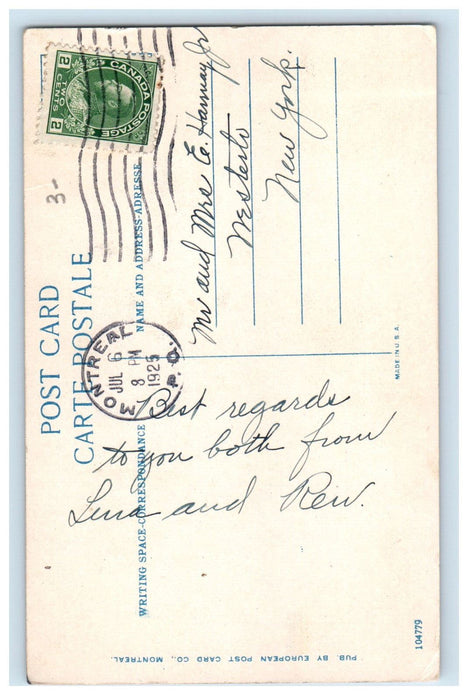 CANADA POSTAGE
2 TWO CENTS 2
3-
POST CARD
CARTE POSTALE
MONTREAL
JUL 6
8 PM
1925
P.Q.
WRITING SPACE-CORRESPONDANCE
NAME AND ADDRESS-ADRESSE
Mr and Mrs E. Hannay Jr
Westerlo
New York.
Best regards
to you both from
Lena and Rew.
MADE IN U.S.A.
PUB. BY EUROPEAN POST CARD CO., MONTREAL.
104779